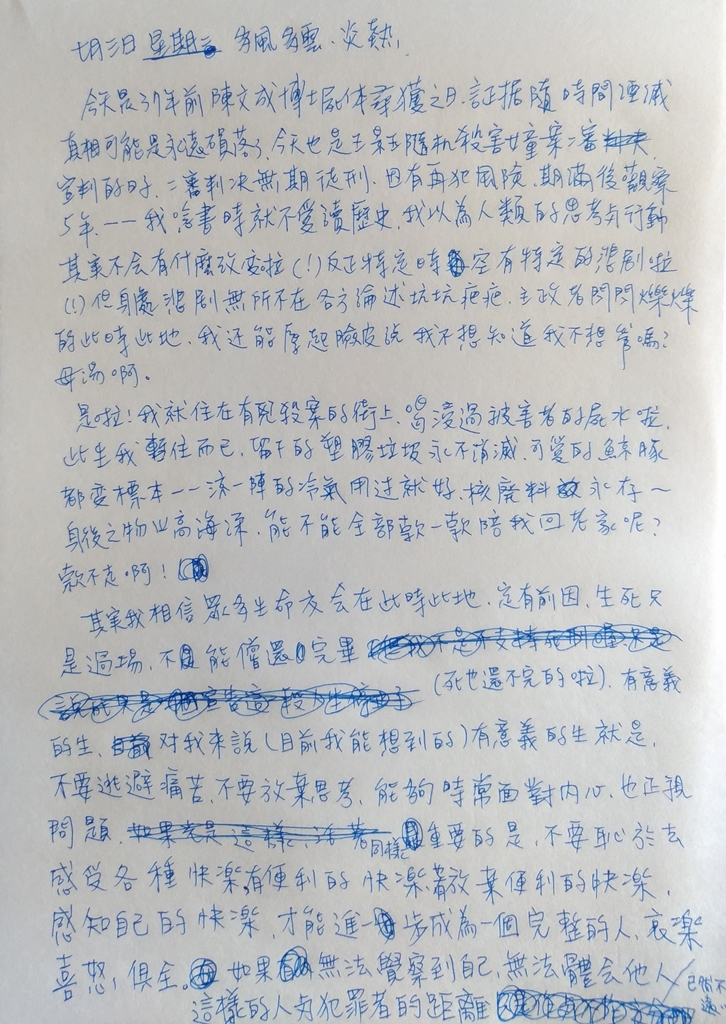 七月三日 星期二 多風多雲、炎熱.
今天是37年前陳文成博士屍体尋獲之日. 証据隨時間湮滅
真相可能是永遠殞落了、今天也是王景玉隨机殺害女童案二審判決
宣判的日子. 二審判決無期徒刑. 因有再犯風險. 期滿後觀察
5年. ——我唸書時就不愛讀歷史. 我以為人類的思考与行動
其實不会有什麼改变啦(!)反正特定時空有特定的悲劇啦
(!)但身處悲劇無所不在各方論述坑坑疤疤. 主政者閃閃爍爍
的此時此地. 我还能厚起臉皮說我不想知道我不想管嗎?
毋湯啊。
是啦!我就住在有兇殺案的街上. 喝浸過被害者的屍水啦.
此生我暫住而已. 留下的塑膠垃圾永不消滅. 可愛的鯨豚
都变標本——涼一陣的冷氣用过就好. 核廢料永存~
身後之物山高海深. 能不能全部款一款陪我回老家呢?
款不走啊!
其実我相信眾多生命交会在此時此地. 定有前因. 生死只
是過場. 不能償還完畢
(死也還不完的啦). 有意義
的生. 对我來說(目前我能想到的)有意義的生就是.
不要逃避痛苦. 不要放棄思考. 能夠時常面對内心. 也正視
問題. 同樣重要的是. 不要恥於去
感受各種快樂. 有便利的快樂. 有放棄便利的快樂.
感知自己的快樂. 才能進一步成為一個完整的人. 哀樂
喜怒. 俱全。如果無法覺察到自己. 無法體会他人
這樣的人与犯罪者的距離 已間不遠